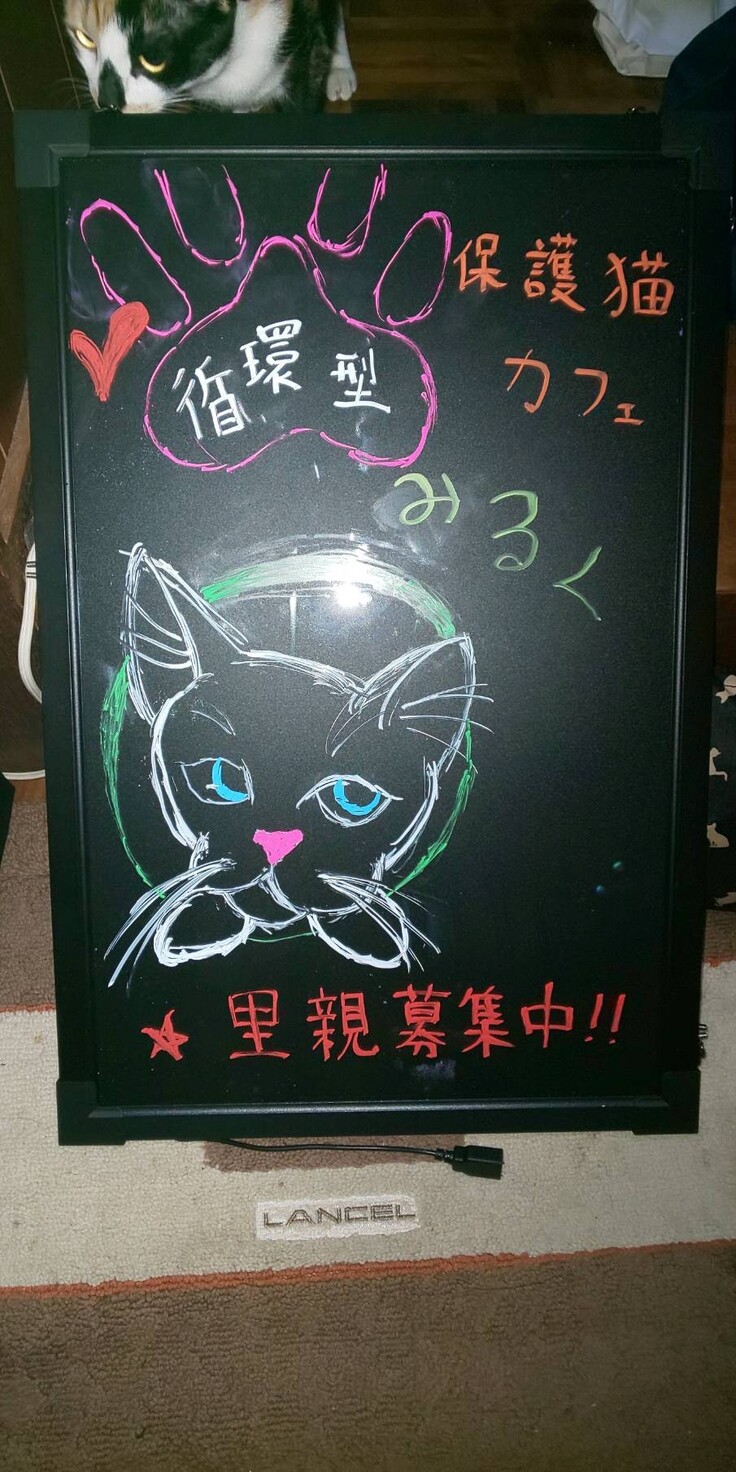 循環型
保護猫
カフェ
みるく
里親募集中!!
LANCEL